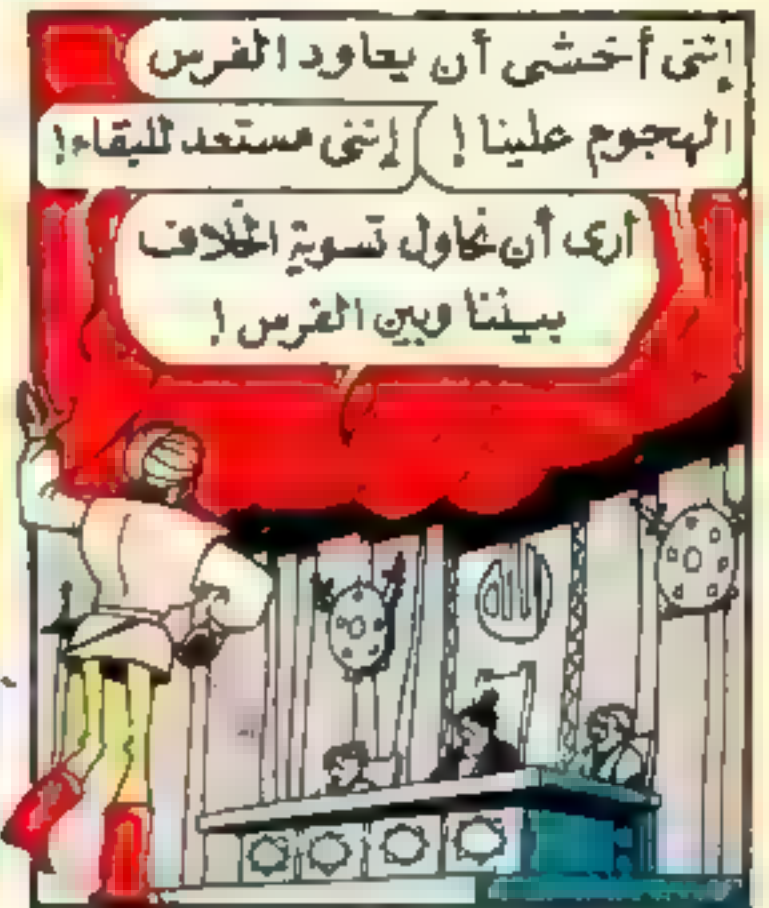 إننى أخشى أن يعاود الفرس
الهجوم علينا !
إننى مستعد للبقاء !
أرى أن نحاول تسوية الخلاف
بيننا وبين الفرس !
الله